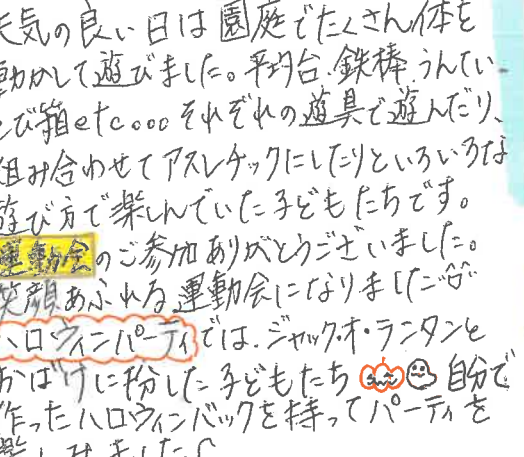 天気の良い日は園庭でたくさん体を
動かして遊びました。平均台、鉄棒、うんてい
とび箱etc...それぞれの遊具で遊んだり、
組み合わせてアスレチックにしたりといろいろな
遊び方で楽しんでいた子どもたちです。
運動会のご参加ありがとうございました。
笑顔あふれる運動会になりました
ハロウィンパーティでは、ジャック・オ・ランタンと
おばけに扮した子どもたち 自分で
作ったハロウィンバックを持ってパーティを
楽しみました